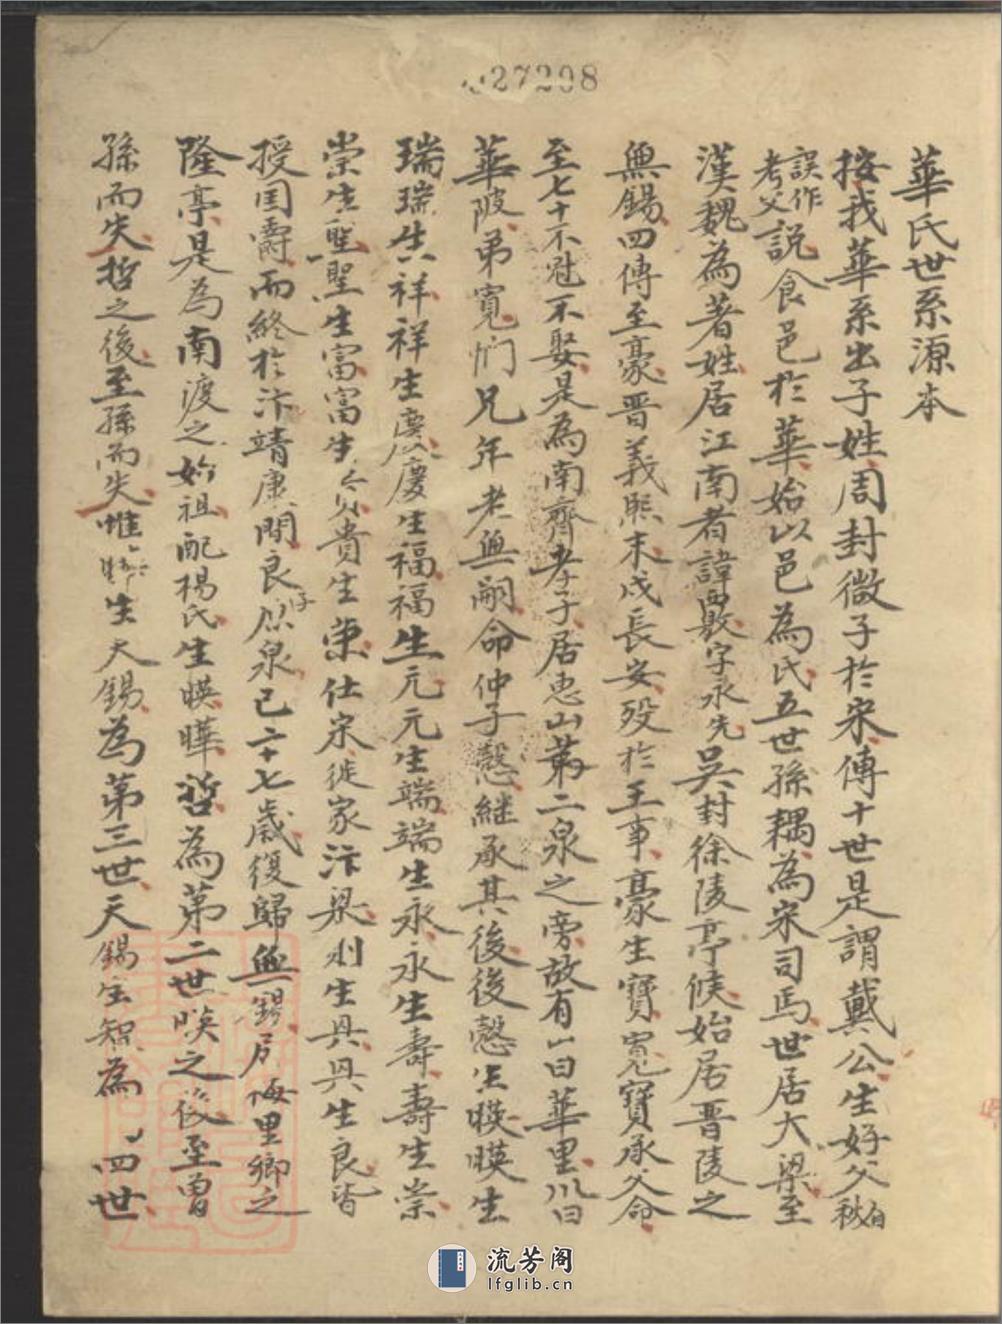 27298
華氏世系源本
按我華系出子姓周封微子於宋傳十世是謂戴公生好父秘白
誤作考父說食邑於華始以邑為氏五世孫耦為宋司馬世居大梁至
漢魏為著姓居江南者諱覈字永先吳封徐陵亭候始居晋陵之
無錫四傳至豪晋義熙末戍長安歿於王事豪生寶寬寶承父命
至七十不冠不娶是為南齊孝子居惠山第二泉之旁故有山曰華里川曰
華陂弟寬憫兄年老無嗣命仲子愨継承其後後愨生暎暎生
瑞瑞生祥祥生慶慶生福福生元元生端端生永永生壽壽生崇
崇生聖聖生富富生貴貴生榮仕宋徙家汴梁生具具生良皆
授国爵而終於汴靖康間良子原泉已六十七歲復歸無錫居梅里鄉之
隆亭是為南渡之始祖配楊氏生暎曄哲為第二世暎之後至曾
孫而失哲之後至孫而失惟曄生天錫為第三世天錫生智為四世
流芳阁
lfglib.cn